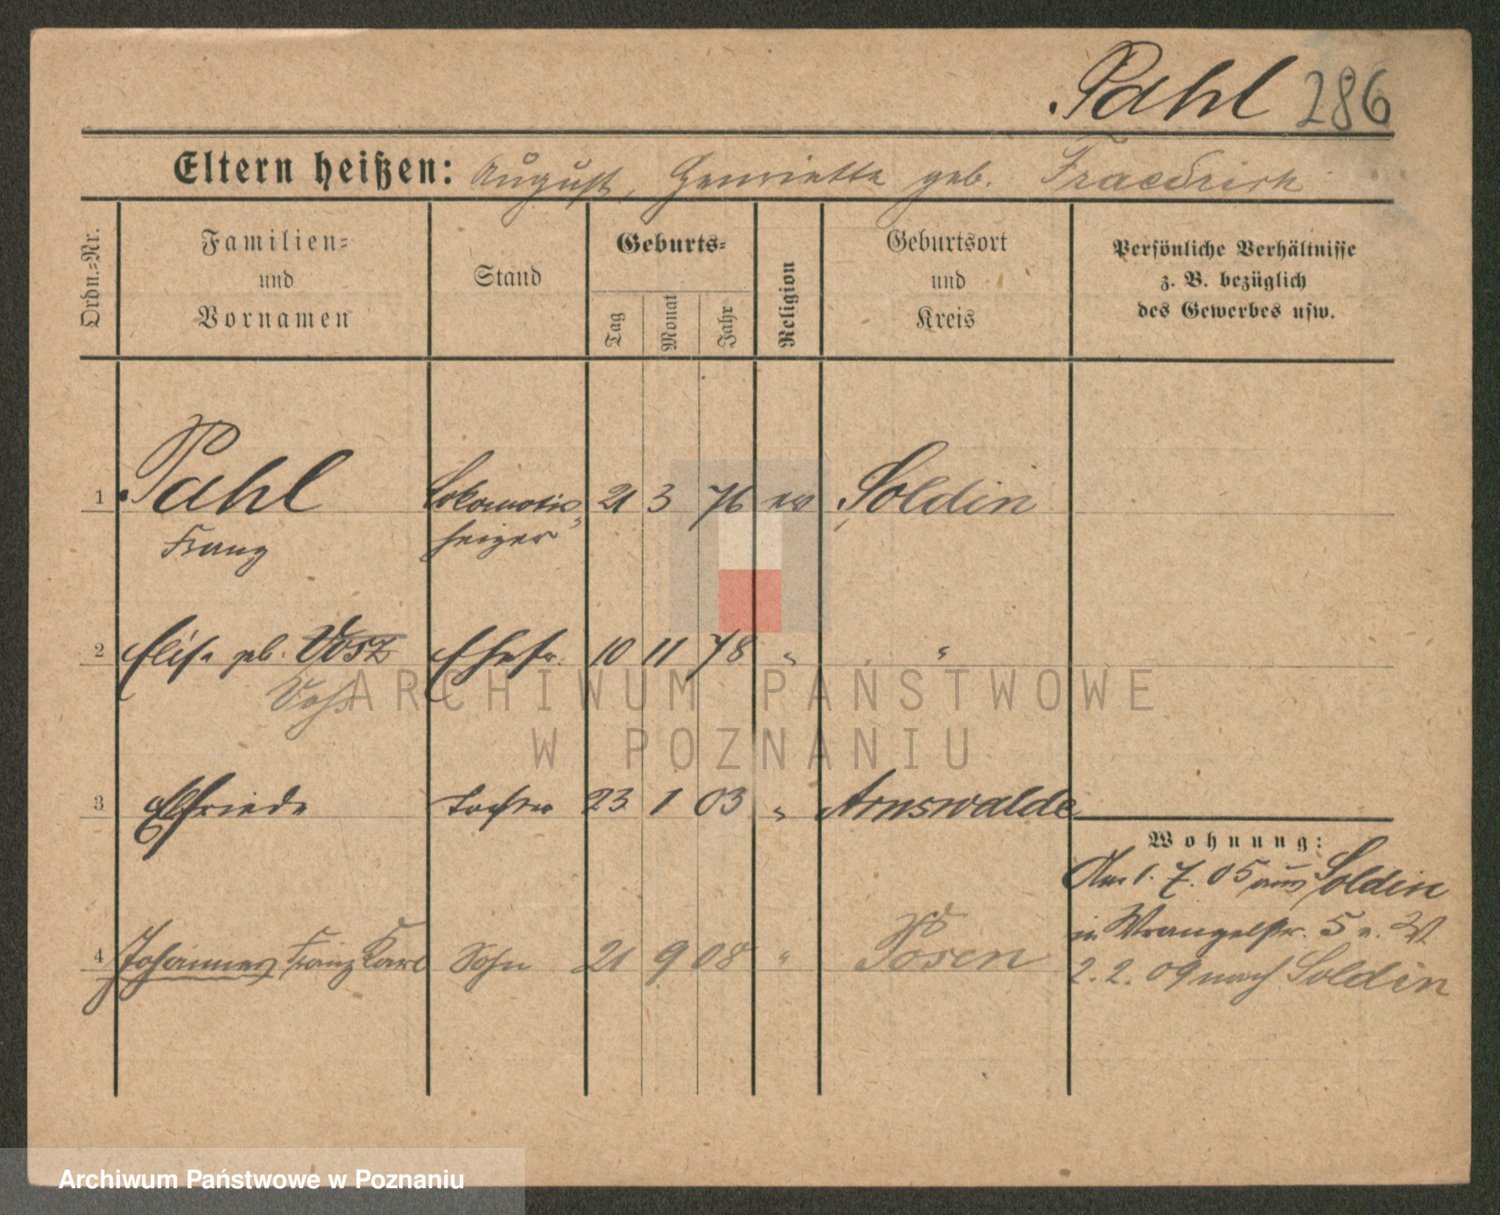 Pahl 286
Eltern heißen: August, Henriette geb. Fraedrich
Ordn.=Nr.
Familien=
und
Vornamen
Stand
Geburts=
Tag
Monat
Jahr
Religion
Geburtsort
und
Kreis
Persönliche Verhältnisse
z. B. bezüglich
des Gewerbes usw.
1 Pahl Lokomotiv 21 3 76 ev Soldin
Franz heizer
2 Elise geb. Vosz Ehefr. 10 11 78 " "
Voß
3 Elfriede Tochter 23 1 03 " Arnswalde
Wohnung:
Am 1. 7. 05 aus Soldin
in Wrangelstr. 5
4 Johannes Franz Karl Sohn 21 9 08 " Posen
2. 2. 09 nach Soldin
ARCHIWUM PAŃSTWOWE
W POZNANIU
Archiwum Państwowe w Poznaniu